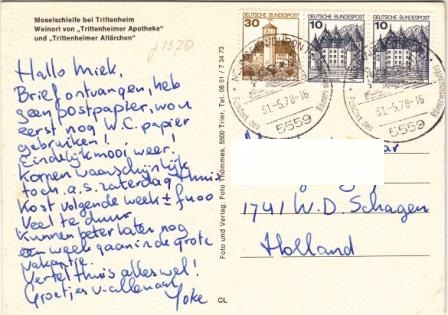 Moselschleife bei Trittenheim
Weinort von „Trittenheimer Apotheke"
und „Trittenheimer Altärchen"
Hallo Miek,
Brief ontvangen, heb
geen postpapier, wou
eerst nog W.C. papier
gebruiken!
Eindelijk mooi weer!
Komen waarschijnlijk
toch a.s. zaterdag thuis
Kost volgende week ± f400
Veel te duur,
Kunnen beter later nog
een week gaan in de grote
vakantie.
Vertel thuis alles wel!
Groetjes v. allemaal
Joke
Foto und Verlag: Foto Thömmes, 5500 Trier, Tel. 06 51 / 7 34 73
GL
DEUTSCHE BUNDESPOST
30
DEUTSCHE BUNDESPOST
10
DEUTSCHE BUNDESPOST
10
31.-5.78-16
5559
31.-5.78-16
5559
1741 W.D. Schagen
Holland